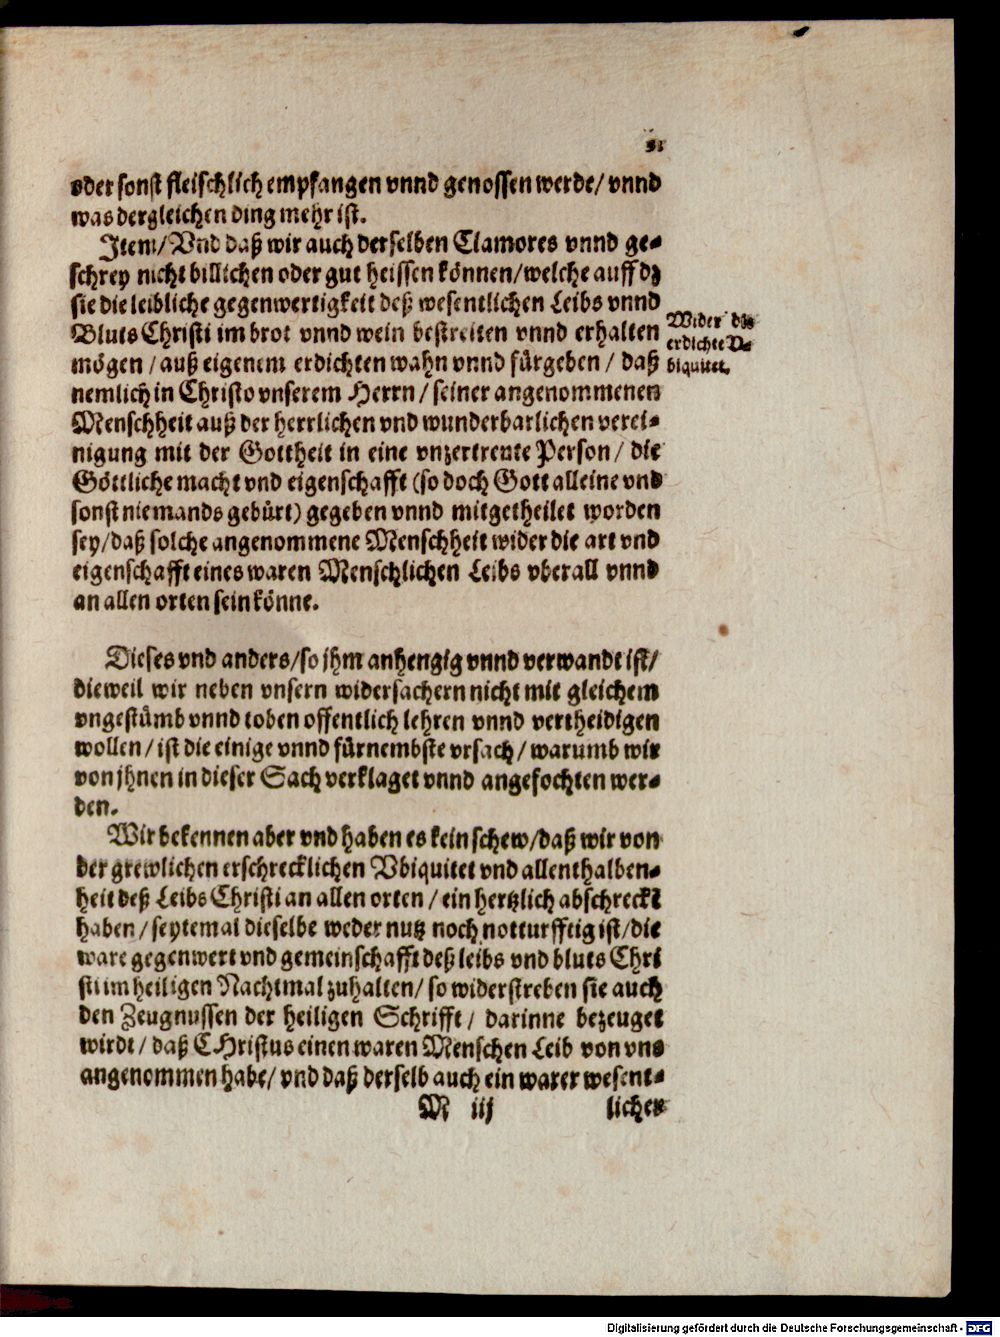 oder sonst fleischlich empfangen vnnd genossen werde/ vnnd
was dergleichen ding mehr ist.
Item/ Vnd daß wir auch derselben Clamores vnnd ge-
schrey nicht billichen oder gut heissen können/ welche auff dz
sie die leibliche gegenwertigkeit deß wesentlichen Leibs vnnd
Bluts Christi im brot vnnd wein bestreiten vnnd erhalten
mögen / auß eigenem erdichten wahn vnnd fürgeben / daß
nemlich in Christo vnserem Herrn / seiner angenommenen
Menschheit auß der herrlichen vnd wunderbarlichen verei-
nigung mit der Gottheit in eine vnzertrente Person / die
Göttliche macht vnd eigenschafft (so doch Gott alleine vnd
sonst niemands gebürt) gegeben vnnd mitgetheilet worden
sey/ daß solche angenommene Menschheit wider die art vnd
eigenschafft eines waren Menschlichen Leibs vberall vnnd
an allen orten sein könne.
Wider die
erdichte V-
biquitet.
Dieses vnd anders/ so jhm anhengig vnnd verwandt ist/
dieweil wir neben vnsern widersachern nicht mit gleichem
vngestümb vnnd toben offentlich lehren vnnd vertheidigen
wollen / ist die einige vnnd fürnembste vrsach / warumb wir
von jhnen in dieser Sach verklaget vnnd angefochten wer-
den.
Wir bekennen aber vnd haben es kein schew/ daß wir von
der grewlichen erschrecklichen Vbiquitet vnd allenthalben-
heit deß Leibs Christi an allen orten / ein hertzlich abschreckt
haben / seytemal dieselbe weder nutz noch notturfftig ist/ die
ware gegenwert vnd gemeinschafft deß leibs vnd bluts Chri
sti im heiligen Nachtmal zuhalten/ so widerstreben sie auch
den Zeugnussen der heiligen Schrifft / darinne bezeuget
wirdt / daß CHristus einen waren Menschen Leib von vns
angenommen habe/ vnd daß derselb auch ein warer wesent-
M iij licher
Digitalisierung gefördert durch die Deutsche Forschungsgemeinschaft - DFG